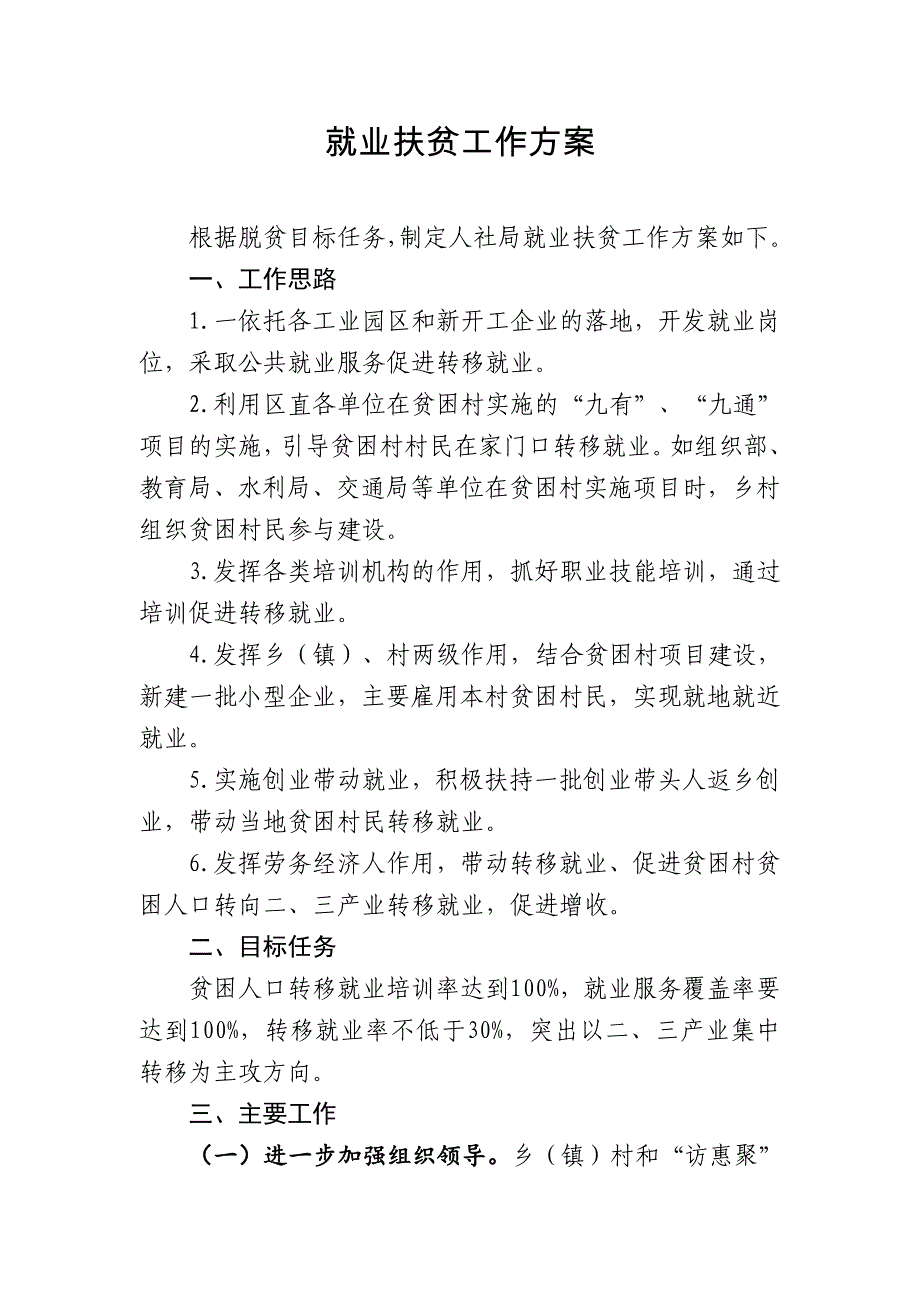 就业扶贫工作方案
根据脱贫目标任务，制定人社局就业扶贫工作方案如下。
一、工作思路
1.一依托各工业园区和新开工企业的落地，开发就业岗
位，采取公共就业服务促进转移就业。
2.利用区直各单位在贫困村实施的“九有”、“九通”
项目的实施，引导贫困村村民在家门口转移就业。如组织部、
教育局、水利局、交通局等单位在贫困村实施项目时，乡村
组织贫困村民参与建设。
3.发挥各类培训机构的作用，抓好职业技能培训，通过
培训促进转移就业。
4.发挥乡（镇）、村两级作用，结合贫困村项目建设，
新建一批小型企业，主要雇用本村贫困村民，实现就地就近
就业。
5.实施创业带动就业，积极扶持一批创业带头人返乡创
业，带动当地贫困村民转移就业。
6.发挥劳务经济人作用，带动转移就业、促进贫困村贫
困人口转向二、三产业转移就业，促进增收。
二、目标任务
贫困人口转移就业培训率达到100%，就业服务覆盖率要
达到100%，转移就业率不低于30%，突出以二、三产业集中
转移为主攻方向。
三、主要工作
（一）进一步加强组织领导。乡（镇）村和“访惠聚”